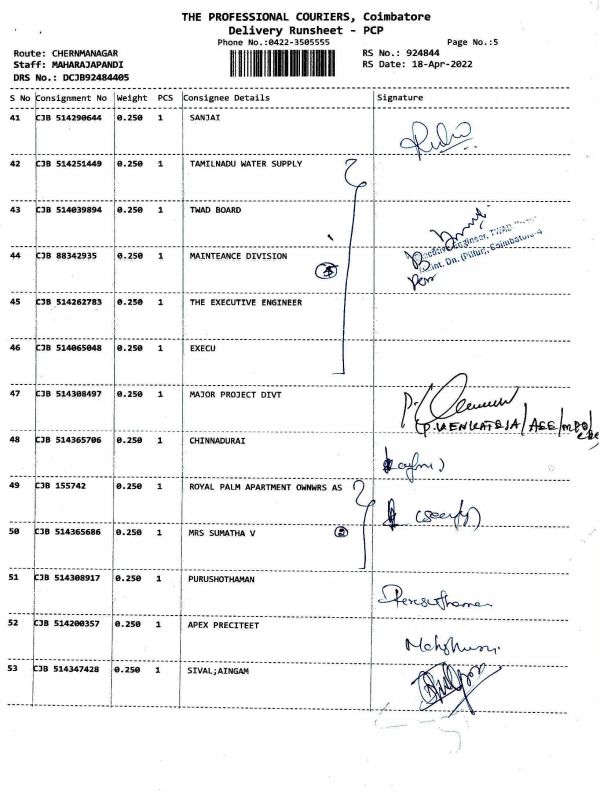 THE PROFESSIONAL COURIERS, Coimbatore
Delivery Runsheet - PCP
Phone No.:0422-3505555 Page No.:5
Route: CHERNMANAGAR RS No.: 924844
Staff: MAHARAJAPANDI RS Date: 18-Apr-2022
DRS No.: DCJB92484405
S No Consignment No Weight PCS Consignee Details Signature
41 CJB 514290644 0.250 1 SANJAI
42 CJB 514251449 0.250 1 TAMILNADU WATER SUPPLY
43 CJB 514039894 0.250 1 TWAD BOARD
Engineer, TWAD
44 CJB 88342935 0.250 1 MAINTEANCE DIVISION
Dn. (Pillur), Coimbatore-4
45 CJB 514262783 0.250 1 THE EXECUTIVE ENGINEER
46 CJB 514065048 0.250 1 EXECU
47 CJB 514308497 0.250 1 MAJOR PROJECT DIVT
(P.VENKATESA/AEE/MPD/
48 CJB 514365706 0.250 1 CHINNADURAI
49 CJB 155742 0.250 1 ROYAL PALM APARTMENT OWNWRS AS
50 CJB 514365686 0.250 1 MRS SUMATHA V 2
51 CJB 514308917 0.250 1 PURUSHOTHAMAN
Purusothaman
52 CJB 514200357 0.250 1 APEX PRECITEET
53 CJB 514347428 0.250 1 SIVAL;AINGAM